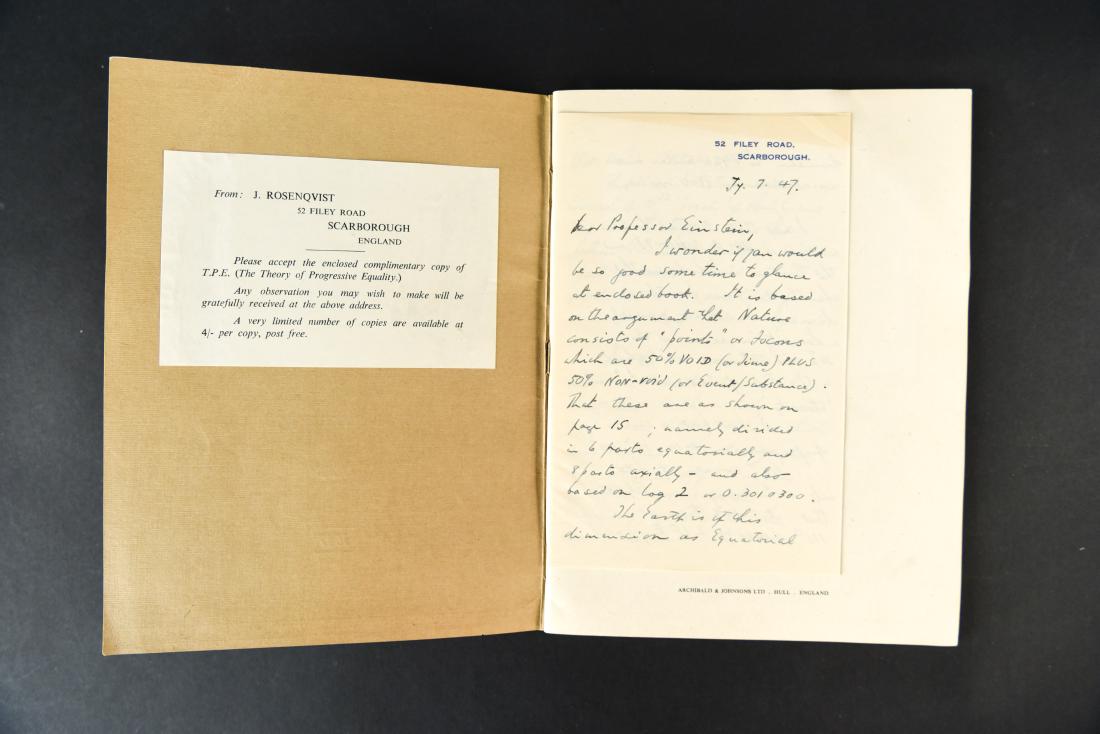 From: J. ROSENQVIST
52 FILEY ROAD
SCARBOROUGH
ENGLAND
Please accept the enclosed complimentary copy of
T.P.E. (The Theory of Progressive Equality.)
Any observation you may wish to make will be
gratefully received at the above address.
A very limited number of copies are available at
4/- per copy, post free.
52 FILEY ROAD,
SCARBOROUGH.
Jy. 7. 47.
Dear Professor Einstein,
I wonder if you would
be so good some time to glance
at enclosed book. It is based
on the argument that Nature
consists of "points" or Focons
which are 50% VOID (or Time) PLUS
50% NON-VOID (or Event/Substance).
That these are as shown on
page 15 ; namely divided
in 6 parts equatorially and
8 parts axially - and also
based on Log 2 or 0.3010300.
The Earth is of this
dimension as Equatorial
ARCHIBALD & JOHNSONS LTD . HULL . ENGLAND